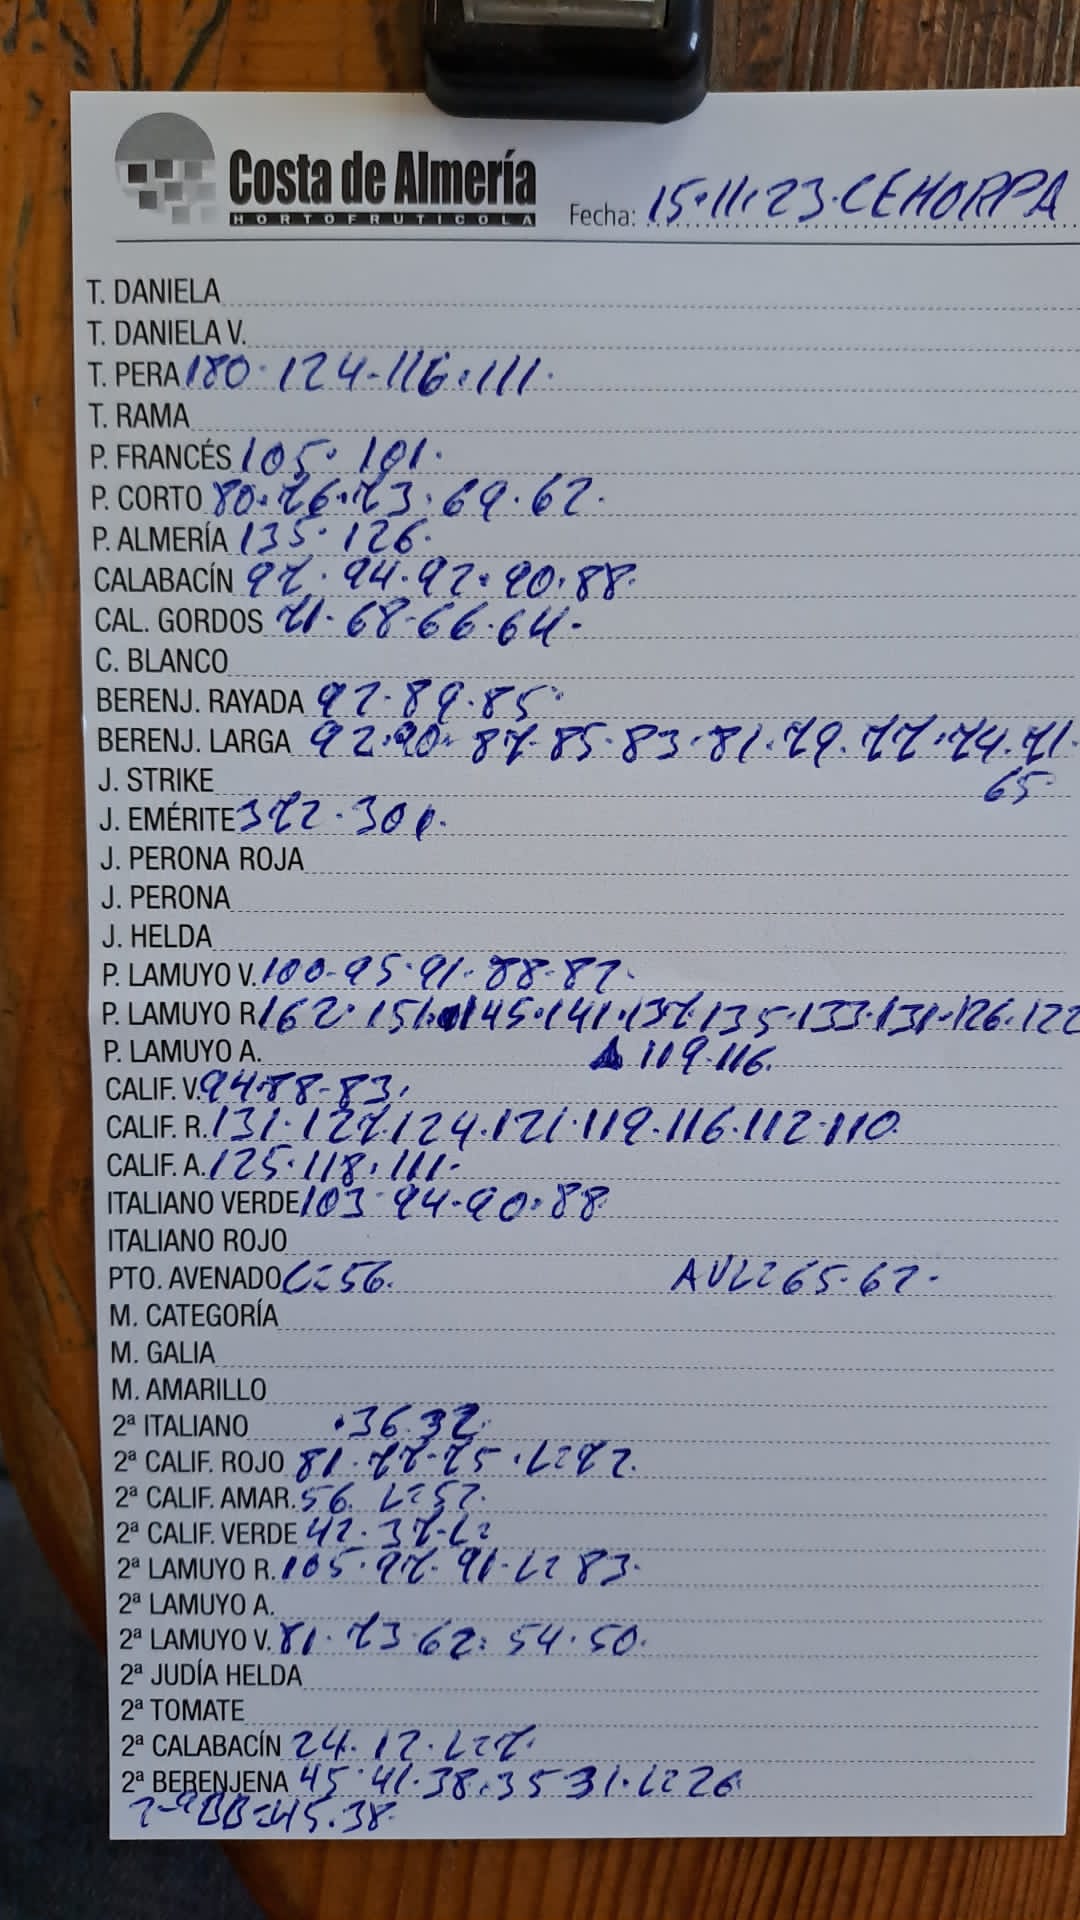 Costa de Almería
HORTOFRUTICOLA
Fecha: 15·11·23·CEHORPA
T. DANIELA
T. DANIELA V.
T. PERA 180·124-116·111·
T. RAMA
P. FRANCÉS 105· 101·
P. CORTO 80·76·73·69·62·
P. ALMERÍA 135·126·
CALABACÍN 97·94·92·90·88·
CAL. GORDOS 71·68·66·64·
C. BLANCO
BERENJ. RAYADA 92·89·85·
BERENJ. LARGA 92·90·87·85·83·81·79·77·74·71·
65·
J. STRIKE
J. EMÉRITE 372·301·
J. PERONA ROJA
J. PERONA
J. HELDA
P. LAMUYO V. 100-95·91·88-87·
P. LAMUYO R 162·151·145·141·137·135·133·131-126·122
119·116·
P. LAMUYO A.
CALIF. V. 94·88-83·
CALIF. R. 131·127·124·121·119·116·112·110·
CALIF. A. 125·118·111·
ITALIANO VERDE 103·94-90·88·
ITALIANO ROJO
PTO. AVENADO L=56. AVL=65·62·
M. CATEGORÍA
M. GALIA
M. AMARILLO
2ª ITALIANO ·36·32·
2ª CALIF. ROJO 81·77-75·L=72·
2ª CALIF. AMAR. 56· L=52·
2ª CALIF. VERDE 42·37-L=
2ª LAMUYO R. 105·97·91·L=83·
2ª LAMUYO A.
2ª LAMUYO V. 81·73·62·54·50·
2ª JUDÍA HELDA
2ª TOMATE
2ª CALABACÍN 24·12·L=7·
2ª BERENJENA 45·41·38·35·31·L=26·
2-ªBB=45·38·